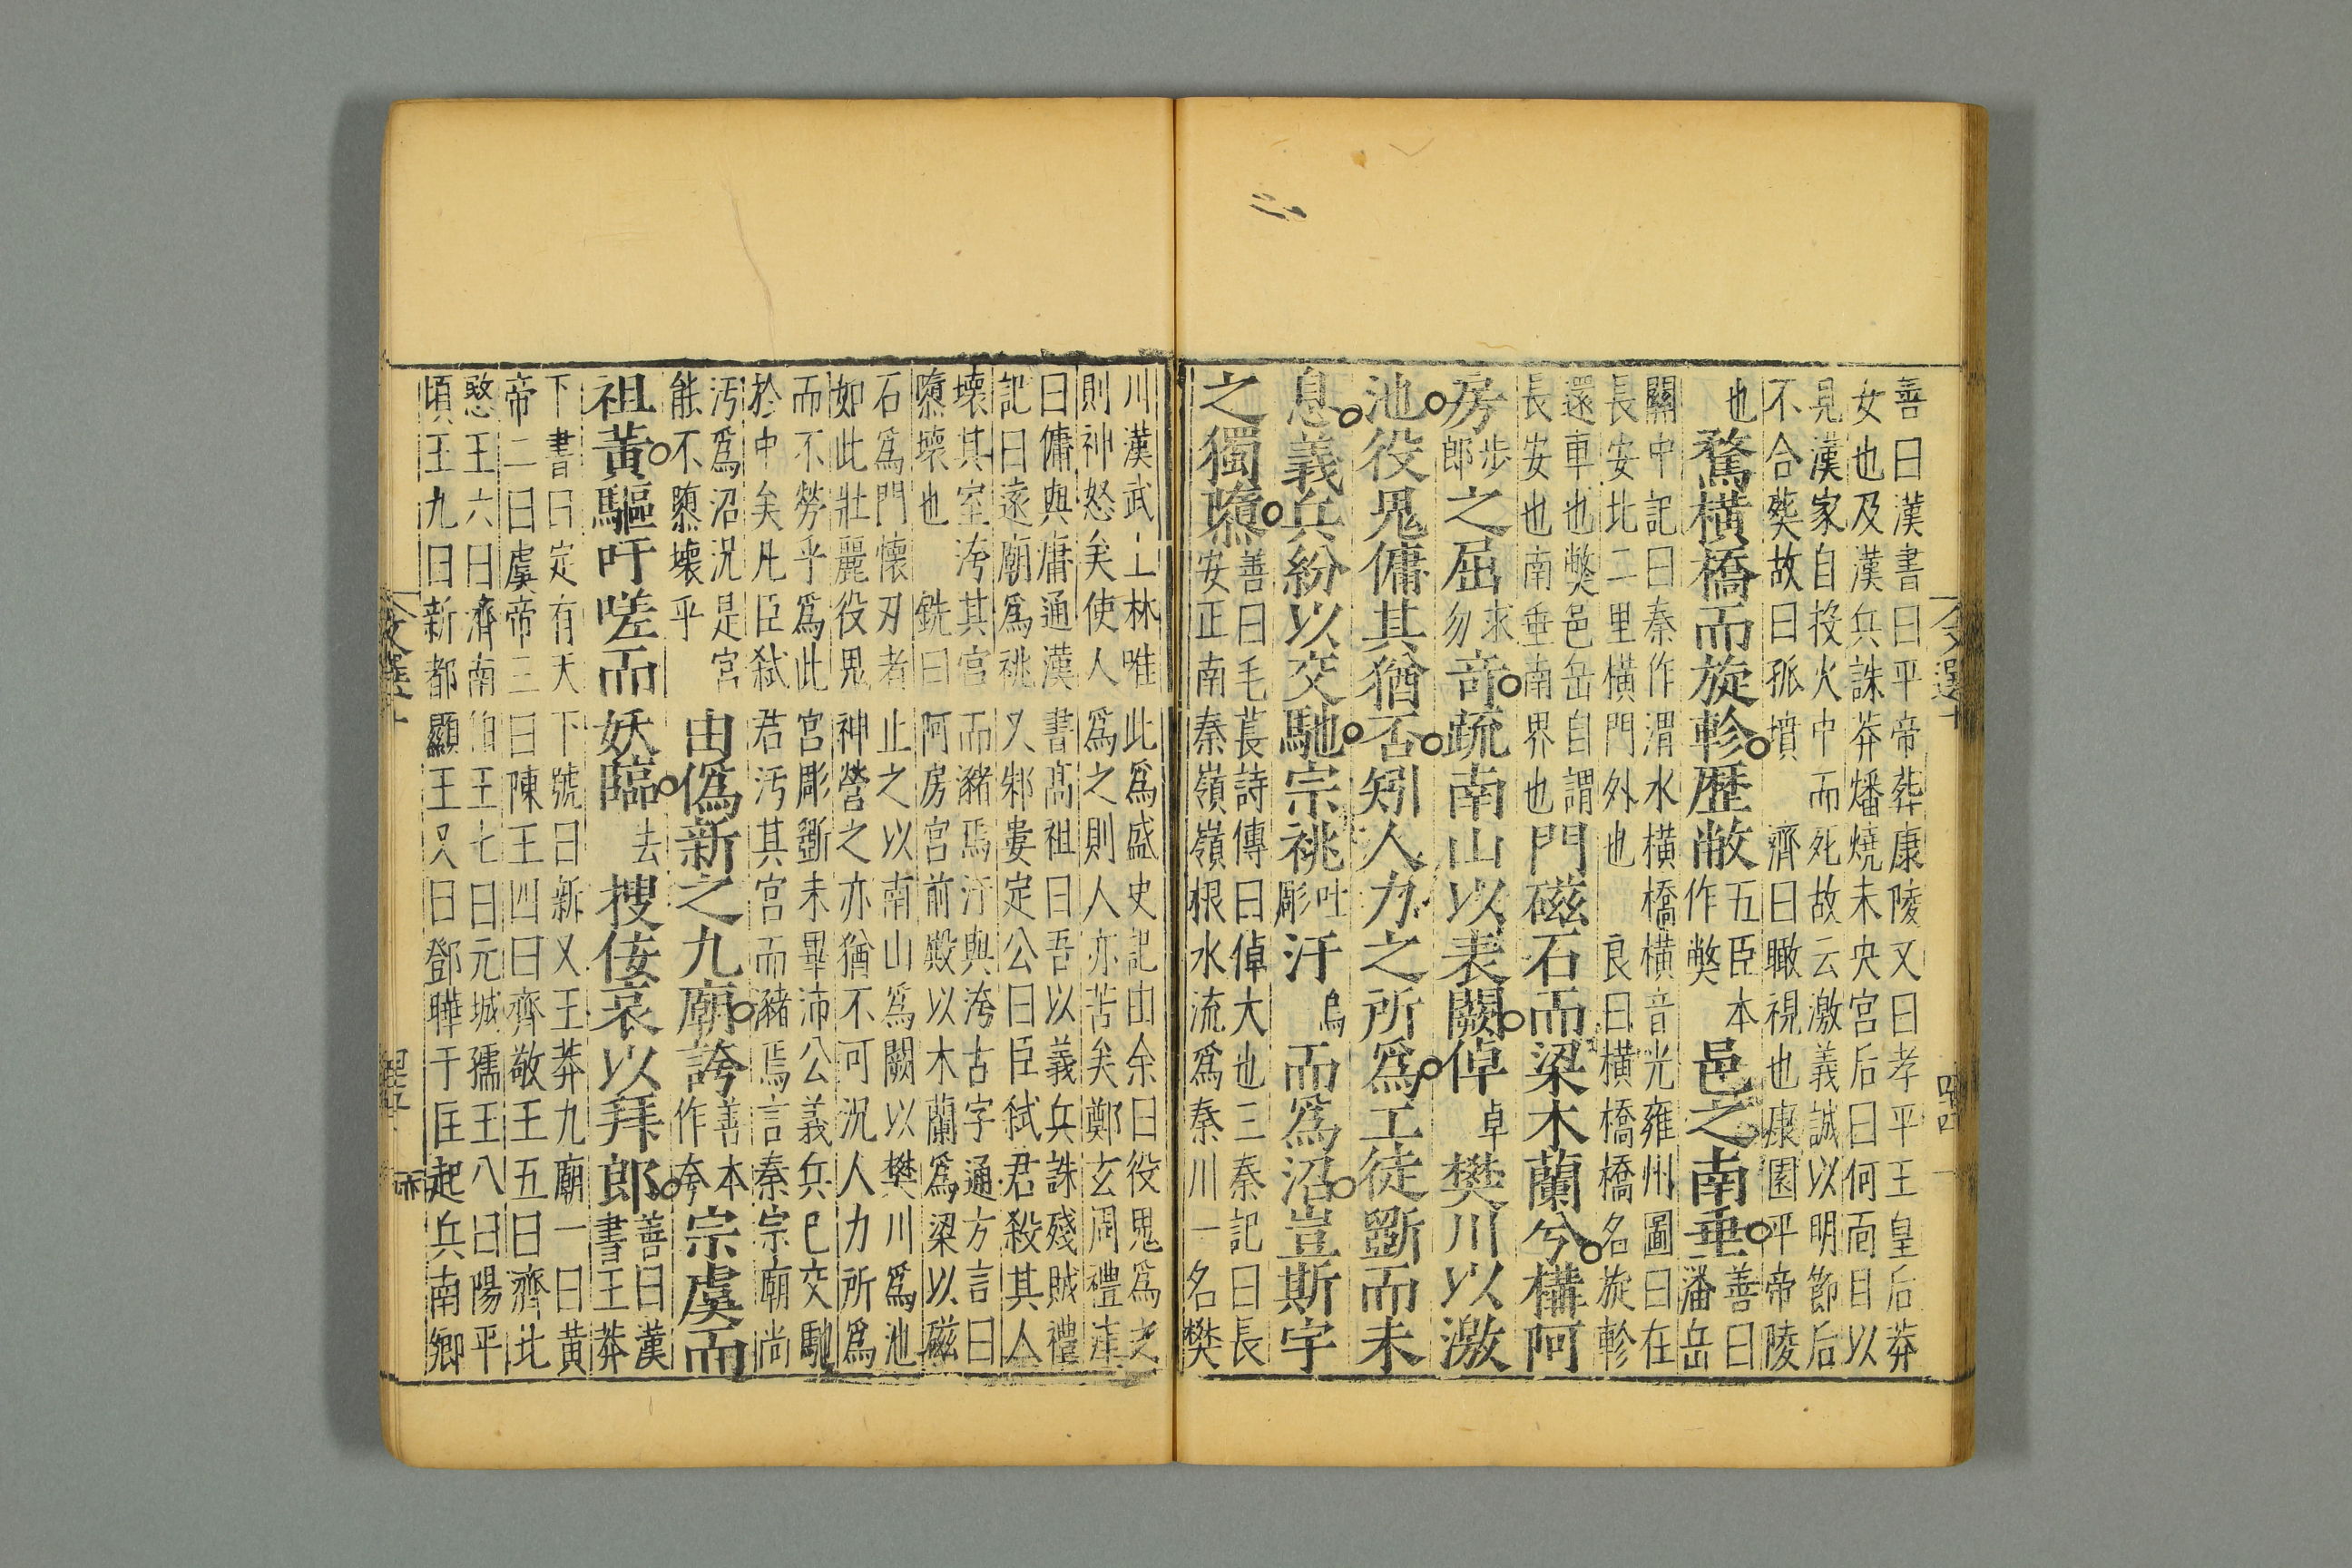 善曰漢書曰平帝葬康陵又曰孝平王皇后莽
女也及漢兵誅莽燔燒未央宮后曰何面目以
見漢家自投火中而死故云激義誠以明節后
不合葬故曰孤墳 濟曰瞰視也康園平帝陵
也騖橫橋而旋軫歷敝五臣本作弊邑之南垂善曰潘岳
關中記曰秦作渭水橫橋橫音光雍州圖曰在
長安北二里橫門外也 良曰橫橋橋名旋軫
還車也弊邑岳自謂長安也南垂南界也門磁石而梁木蘭兮構阿
房步郎之屈求勿竒疏南山以表闕倬卓樊川以激
池役鬼傭其猶否矧人力之所爲工徒斵而未
息義兵紛以交馳宗祧吐彫汙烏而爲沼豈斯宇
之獨隳善曰毛萇詩傳曰倬大也三秦記曰長
安正南秦嶺嶺根水流爲秦川一名樊
川漢武上林唯此爲盛史記由余曰役鬼爲之
則神怒矣使人爲之則人亦苦矣鄭玄周禮注
曰傭與庸通漢書高祖曰吾以義兵誅殘賊禮
記曰遠廟爲祧又邾婁定公曰臣弒君殺其人
壞其室洿其宮而豬焉汙與洿古字通方言曰
隳壞也 銑曰阿房宮前殿以木蘭爲梁以磁
石爲門懷刃者止之以南山爲闕以樊川爲池
如此壯麗役鬼神營之亦猶不可況人力所爲
而不勞乎爲此宮彫斵未畢沛公義兵已交馳
於中矣凡臣弒君汚其宮而豬焉言秦宗廟尚
汚爲沼況是宮能不隳壞乎由僞新之九廟誇善本作夸宗虞而
祖黃驅吁嗟而妖臨去搜佞哀以拜郎善曰漢書王莽
下書曰定有天下號曰新又王莽九廟一曰黃
帝二曰虞帝三曰陳王四曰齊敬王五曰濟北
愍王六曰濟南伯王七曰元城孺王八曰陽平
頃王九曰新都顯王又曰鄧曄于匡起兵南鄉
文選十